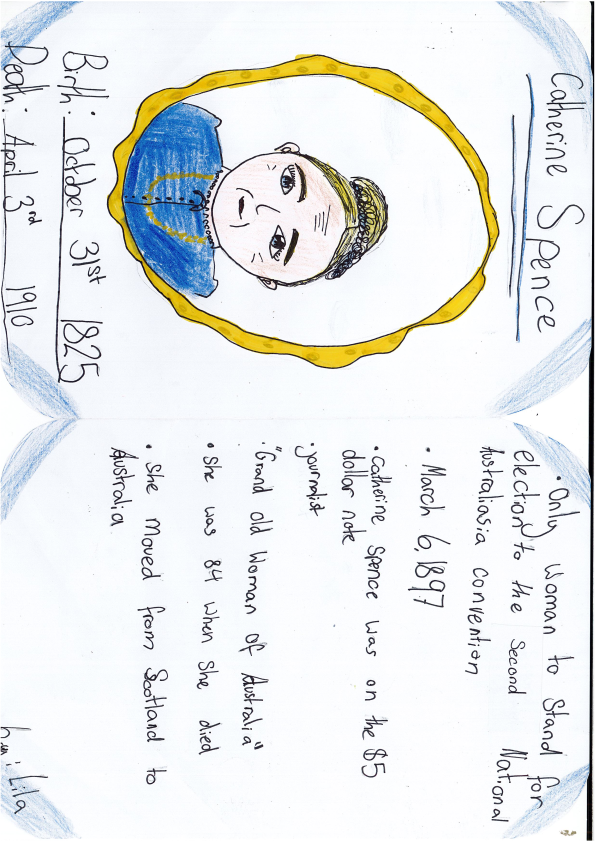 Catherine Spence
Birth: October 31st 1825
Death: April 3rd 1910
• Only Woman to Stand for
election to the Second National
Australiasia convention
• March 6, 1897
• Catherine Spence was on the $5
dollar note
• journalist
• "Grand old Woman of Australia"
• She was 84 when She died
• She moved from Scotland to
Australia
Lila